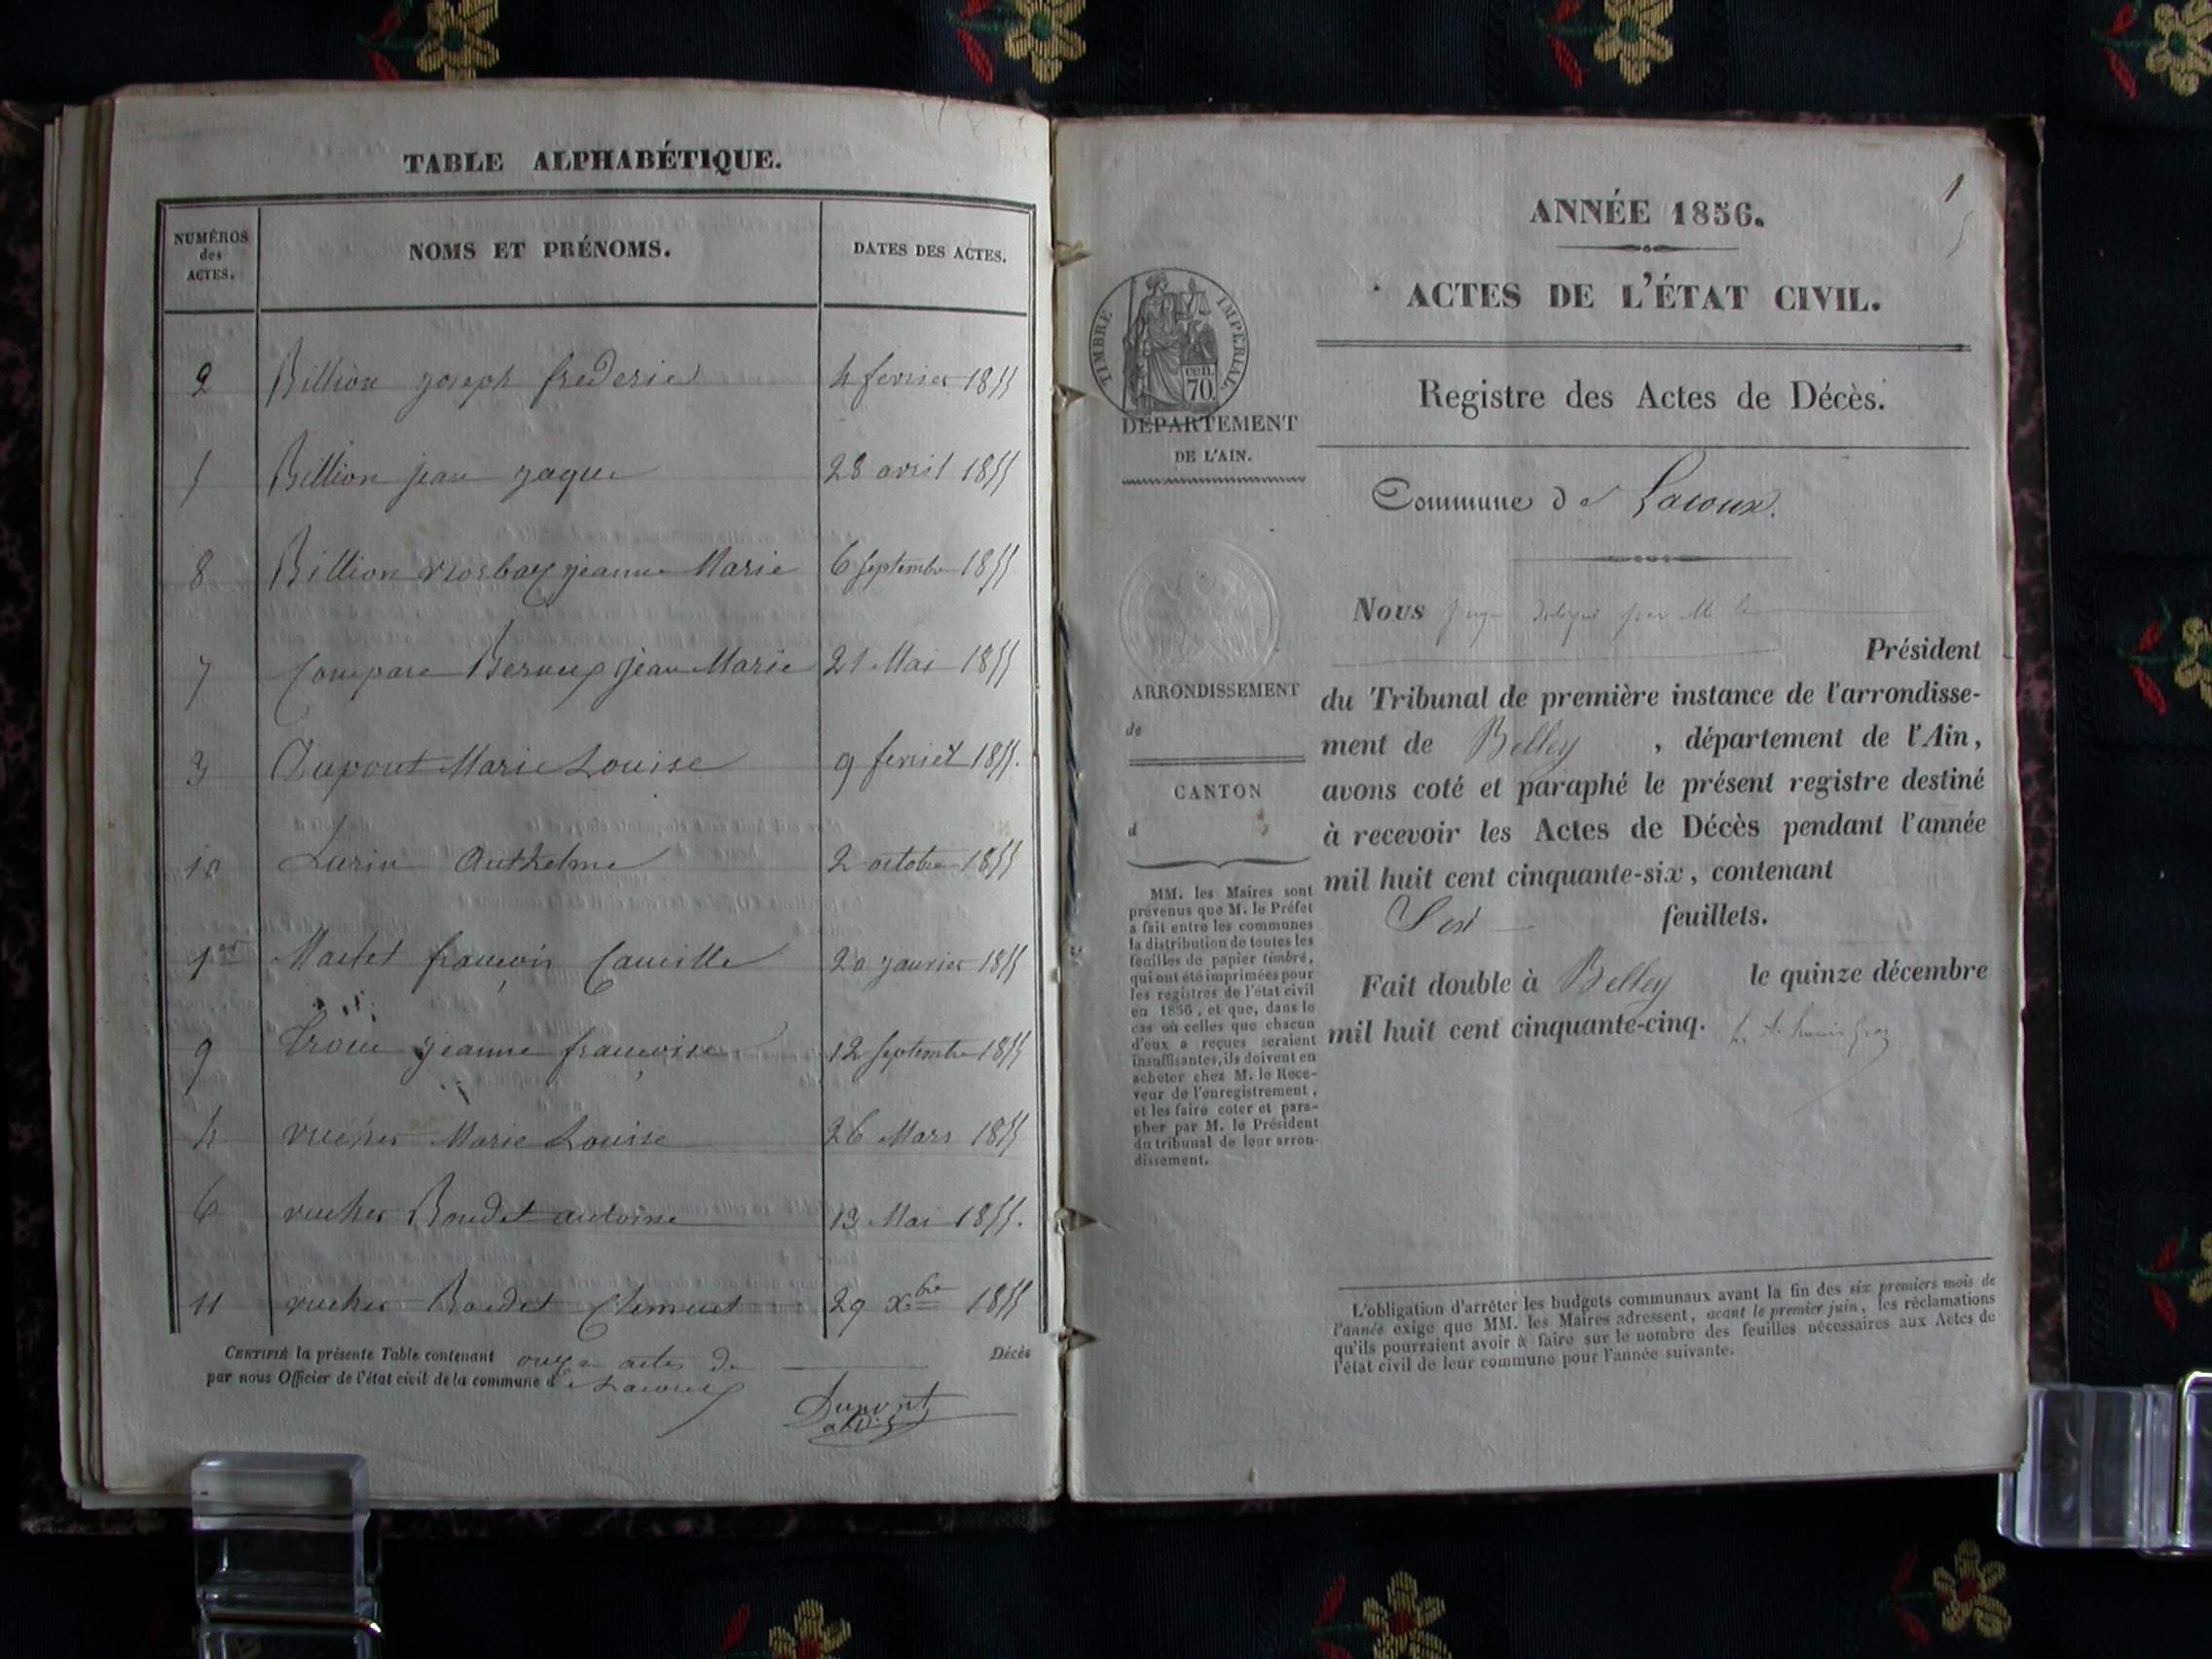 TABLE ALPHABÉTIQUE.
NUMÉROS des ACTES.
NOMS ET PRÉNOMS.
DATES DES ACTES.
2 Billion joseph frederic 4 fevrier 1855
5 Billion jean jaque 28 avril 1855
8 Billion jeanne Marie 6 septembre 1855
7 Compare jean Marie 21 Mai 1855
3 Dupont Marie Louise 9 fevrier 1855.
10 Lurin Anthelme 2 octobre 1855
1er françois Camille 20 janvier 1855
9 jeanne françoise 12 septembre 1855
4 rucher Marie Louise 26 Mars 1855
6 rucher Boudet antoine 13 Mai 1855.
11 rucher Boudet Clement 29 Xbre 1855
CERTIFIÉ la présente Table contenant onze actes de Décès
par nous Officier de l'état civil de la commune de Lacoux
Dupont
1
ANNÉE 1856.
ACTES DE L'ÉTAT CIVIL.
TIMBRE IMPERIAL
cen.
70.
Registre des Actes de Décès.
DÉPARTEMENT
DE L'AIN.
Commune de Lacoux.
Nous juge délégué par M le
Président
du Tribunal de première instance de l'arrondisse-
ment de Belley, département de l'Ain,
avons coté et paraphé le présent registre destiné
à recevoir les Actes de Décès pendant l'année
mil huit cent cinquante-six, contenant
Six feuillets.
Fait double à Belley le quinze décembre
mil huit cent cinquante-cinq.
ARRONDISSEMENT
de
CANTON
d
MM. les Maires sont
prévenus que M. le Préfet
a fait entre les communes
la distribution de toutes les
feuilles de papier timbré,
qui ont été imprimées pour
les registres de l'état civil
en 1856, et que, dans le
cas où celles que chacun
d'eux a reçues seraient
insuffisantes, ils doivent en
acheter chez M. le Rece-
veur de l'enregistrement,
et les faire coter et para-
pher par M. le Président
du tribunal de leur arron-
dissement.
L'obligation d'arrêter les budgets communaux avant la fin des six premiers mois de
l'année exige que MM. les Maires adressent, avant le premier juin, les réclamations
qu'ils pourraient avoir à faire sur le nombre des feuilles nécessaires aux Actes de
l'état civil de leur commune pour l'année suivante.